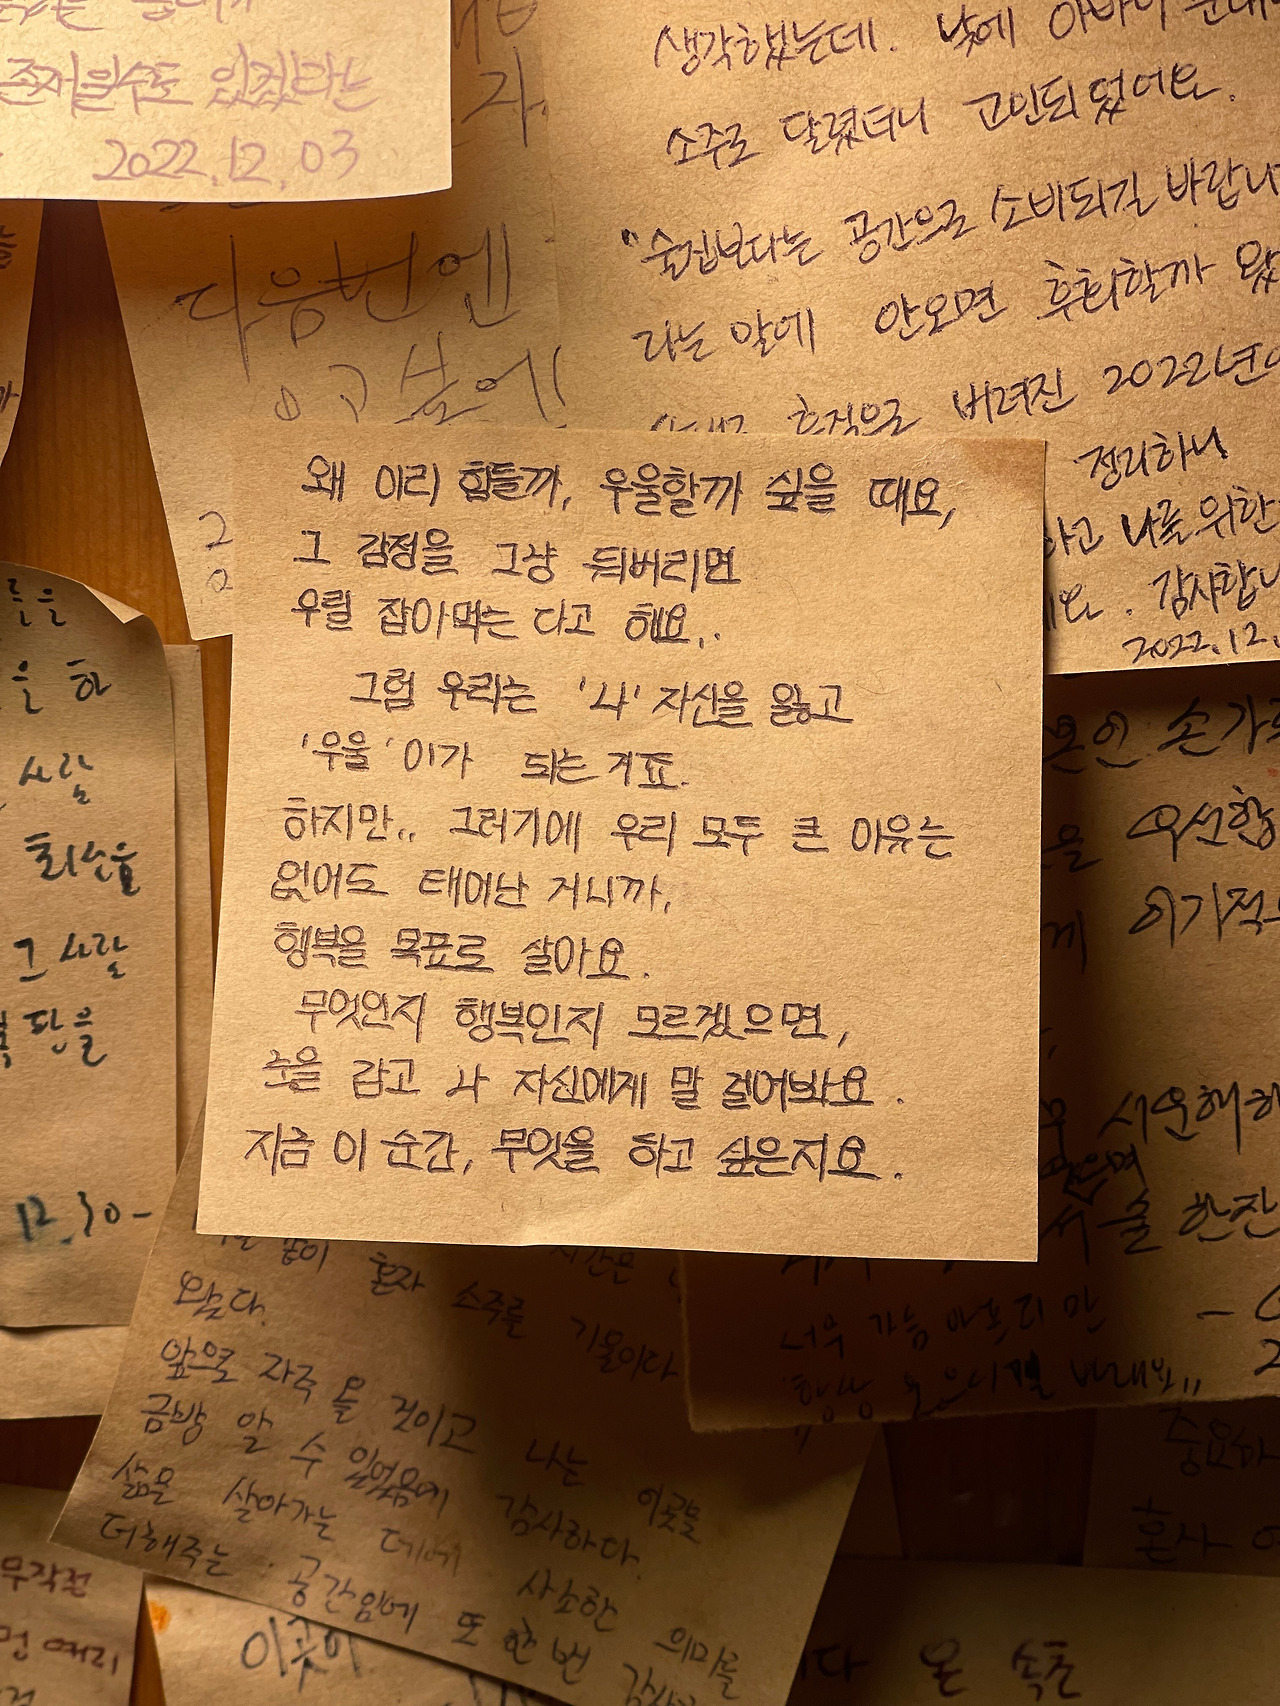 존재일수도 있겠다는
2022.12.03
다음번엔
생각했는데. 낮에 아바이
소주로 달렸더니 고민되었어요.
"술집보다는 공간으로 소비되길 바랍니
라는 말에 안오면 후회할까 왔
흔적으로 버려진 2022년
정리하니
하고 나를 위한
감사합니
2022.12.
왜 이리 힘들까, 우울할까 싶을 때요,
그 감정을 그냥 둬버리면
우릴 잡아먹는 다고 해요..
그럼 우리는 '나' 자신을 잃고
'우울'이가 되는 거죠.
하지만.. 그러기에 우리 모두 큰 이유는
없어도 태어난 거니까,
행복을 목표로 살아요.
무엇인지 행복인지 모르겠으면,
눈을 감고 나 자신에게 말 걸어봐요.
지금 이 순간, 무엇을 하고 싶은지요.
를을
을 하
사람
최선을
그 사람
12.30-
본인 손가
우선
이기적
서운해하
서 술 한잔
너무 가슴 아프지만
항상
같이 혼자 소주를 기울이다
왔다.
앞으로 자주 올 것이고 나는 이곳을
금방 알 수 있었음에 감사하다.
삶을 살아가는 데에 사소한 의미를
더해주는 공간임에 또 한번
무작정
이곳이
온 속초